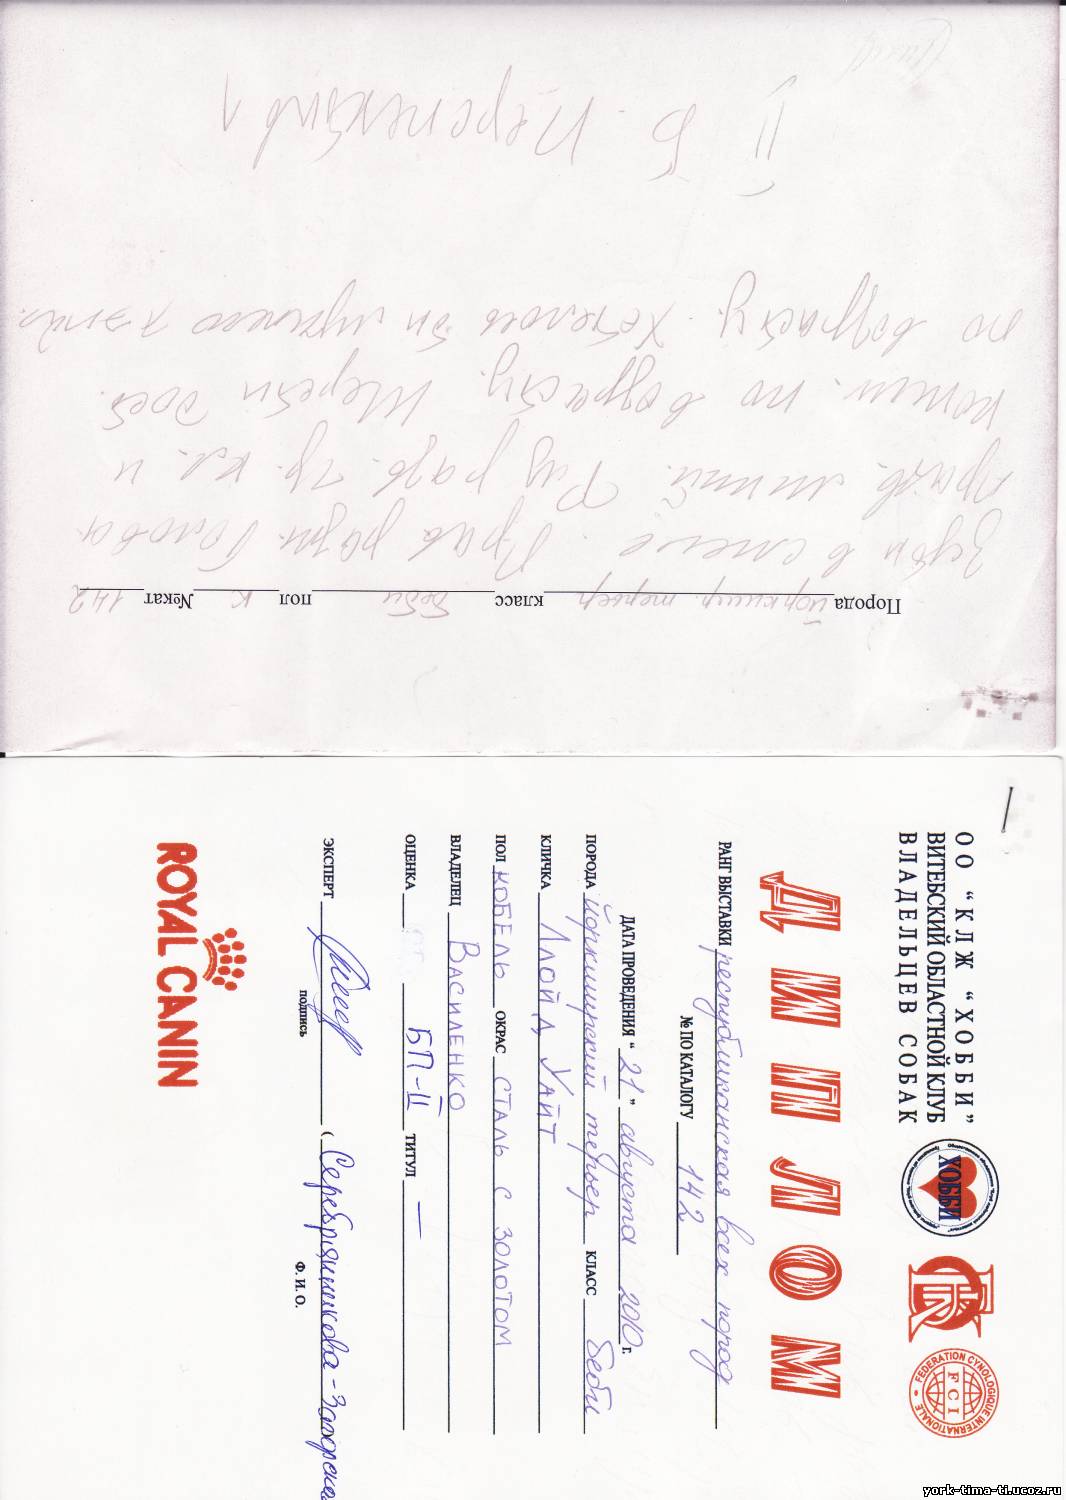 Порода йоркшир. терьер класс беби пол к №кат 142
Зубы в смене. Прав разм. Голова
прав. линий. Физ разв. гр. кл. и
конеч. по возрасту. Шерсть дост.
по возрасту. Хотелось бы лучшего
II Б. Перспективн
ОО "КЛЖ "ХОББИ"
ВИТЕБСКИЙ ОБЛАСТНОЙ КЛУБ
ВЛАДЕЛЬЦЕВ СОБАК
ХОББИ
FEDERATION CYNOLOGIQUE INTERNATIONALE
FCI
ДИПЛОМ
РАНГ ВЫСТАВКИ республиканская всех пород
№ ПО КАТАЛОГУ 142
ДАТА ПРОВЕДЕНИЯ "21" августа 2010 г.
ПОРОДА йоркширский терьер КЛАСС беби
КЛИЧКА ЛЛОЙД УАЙТ
ПОЛ КОБЕЛЬ ОКРАС СТАЛЬ С ЗОЛОТОМ
ВЛАДЕЛЕЦ ВАСИЛЕНКО
ОЦЕНКА БП-II ТИТУЛ —
ЭКСПЕРТ (Серебрянникова-Заборска
подпись Ф. И. О.
ROYAL CANIN
york-tima-ti.ucoz.ru